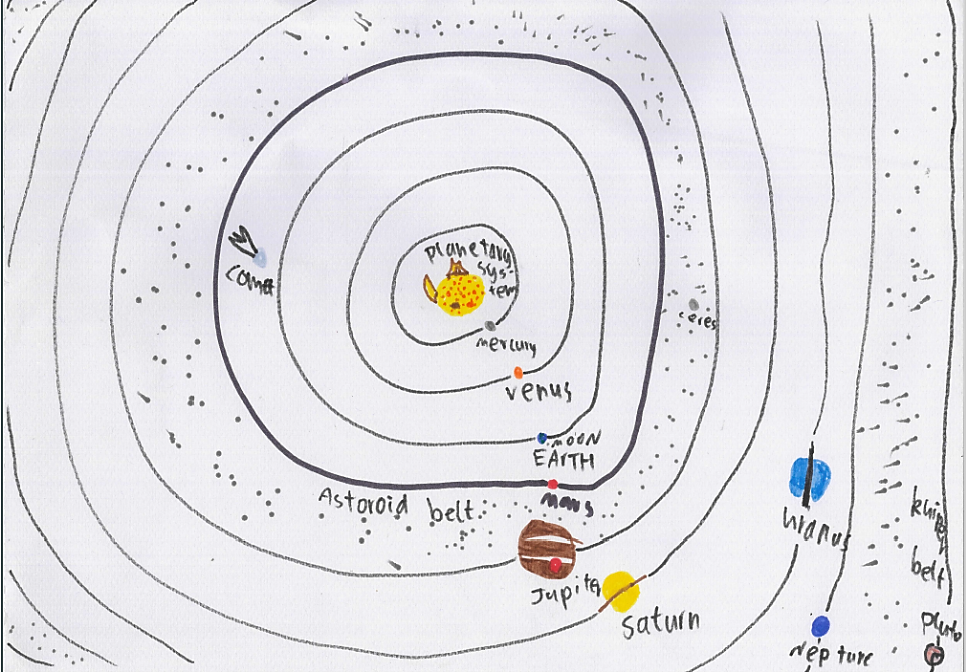 planetary
sys-
tem
comet
ceres
mercury
venus
moon
EARTH
mars
Astoroid belt
Jupiter
saturn
uranus
belt
pluto
Nepture